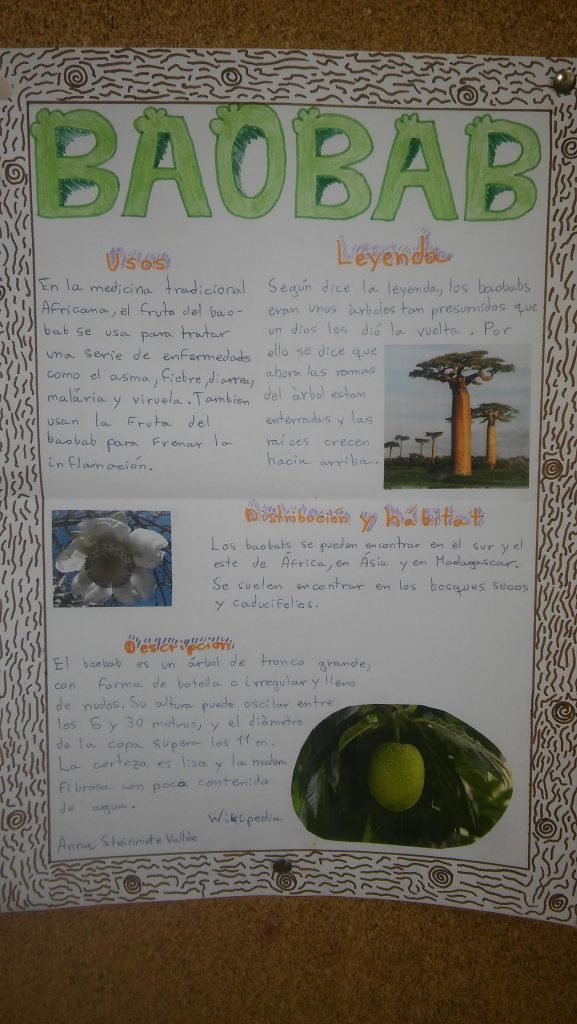 BAOBAB
Usos
En la medicina tradicional
Africana, el fruto del bao-
bab se usa para tratar
una serie de enfermedades
como el asma, fiebre, diarrea,
malária y viruela. Tambien
usan la fruta del
baobab para frenar la
inflamación.
Leyenda
Según dice la leyenda, los baobabs
eran unos àrboles tan presumidos que
un dios les dió la vuelta. Por
ello se dice que
ahora las ramas
del àrbol estan
enterradas y las
raíces crecen
hacia arriba.
Distribución y hábitat
Los baobabs se pueden encontrar en el sur y el
este de África, en Ásia y en Madagascar.
Se suelen encontrar en los bosques secos
y caducifolios.
Descripción
El baobab es un árbol de tronco grande,
con forma de botella o irregular y lleno
de nudos. Su altura puede oscilar entre
los 5 y 30 metros, y el diàmetro
de la copa supera los 11 m.
La corteza es lisa y la madera
fibrosa con poco contenido
de agua.
Wikipedia
Anna Steinmote Vallès